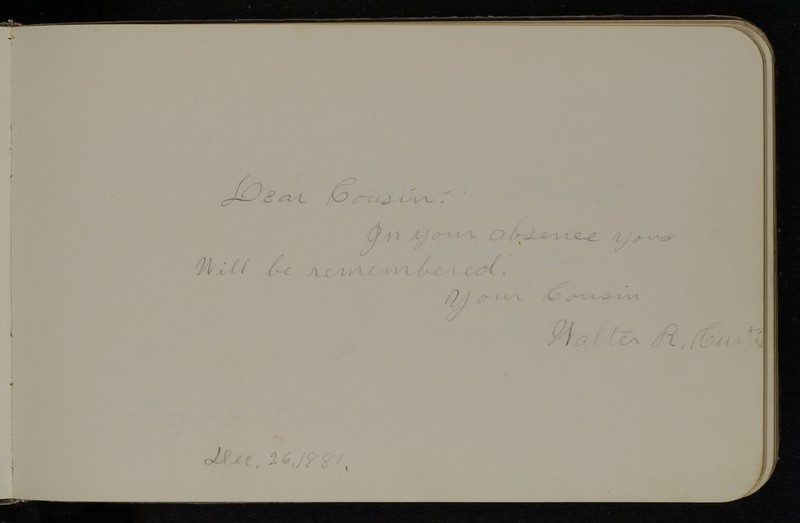 Dear Cousin:
In your absence you
Will be remembered.
Your Cousin
Walter R. Curtis
Dec. 26. 1881.